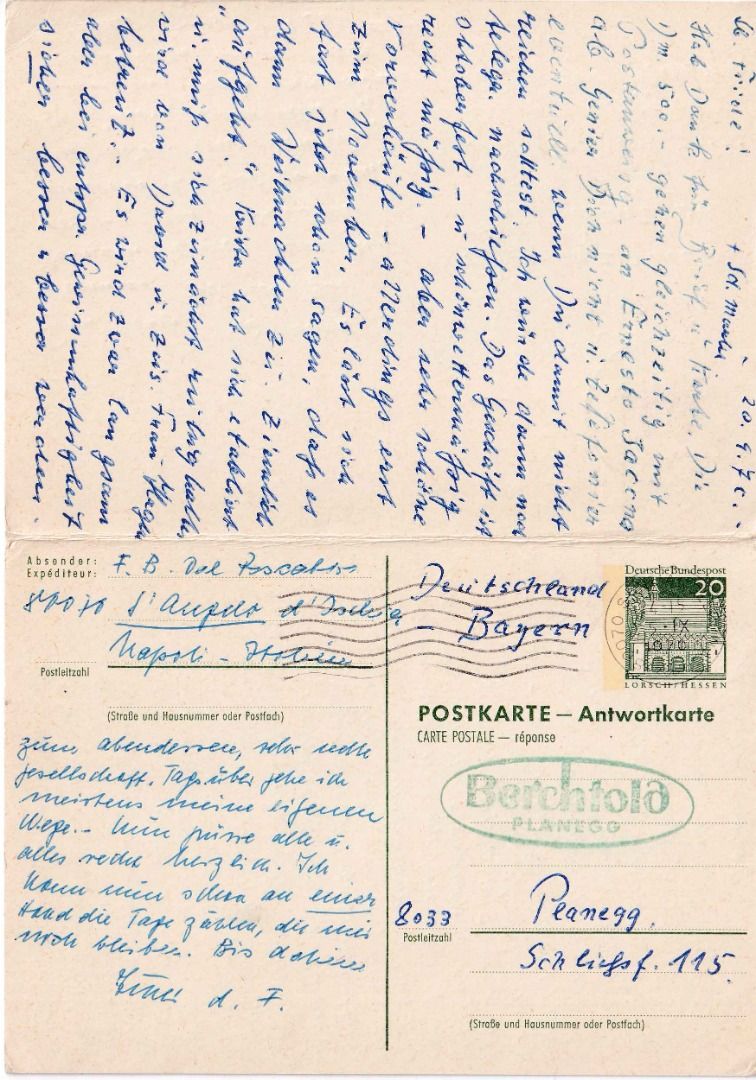 20. 9. 70. -
Lb. Trude! + Sch. Mumlu
Hab Dank für Brief u Karte. Die
Dm 500.- gehen gleichzeitig mit
Postanweisg - an Ernesto
ab. Genier Dich nicht u. telefonier
eventuell wenn Du damit nicht
reichen solltest. Ich würde dann noch
telegr. nachschiessen. Das Geschäft ist
Oktoberfest - u schönwettermäßig
recht mässig. - aber sehr schöne
Vorverkäufe - allerdings erst
zum November. Es lässt sich
fast jetzt schon sagen, dass es
dann Weihnachten zu. Ziemlich
"aufgeht." hat sich etabliert
u. muss sich zunächst ruhig halten
wird von David u. Frau
betreut. - Es wird zwar langsam
aber bei entspr. Gewissenhaftigkeit
sicher besser u besser werden.
Absender:
Expéditeur:
F. B. Del
80070 S'Angelo d'Ischia
Napoli - Italien
Postleitzahl
(Straße und Hausnummer oder Postfach)
zum abendessen, sehr nette
gesellschaft. Tagsüber gehe ich
meistens meine eigenen
Wege. - Nun grüsse alle u.
alles recht herzlich. Ich
kann nun schon an einer
Hand die Tage zählen, die mir
noch bleiben. Bis dahin
d. F.
Deutschland
- Bayern
Deutsche Bundespost
20
LORSCH/HESSEN
IX
1970
POSTKARTE — Antwortkarte
CARTE POSTALE — réponse
Berchtold
PLANEGG
8033
Postleitzahl
Planegg,
115.
(Straße und Hausnummer oder Postfach)